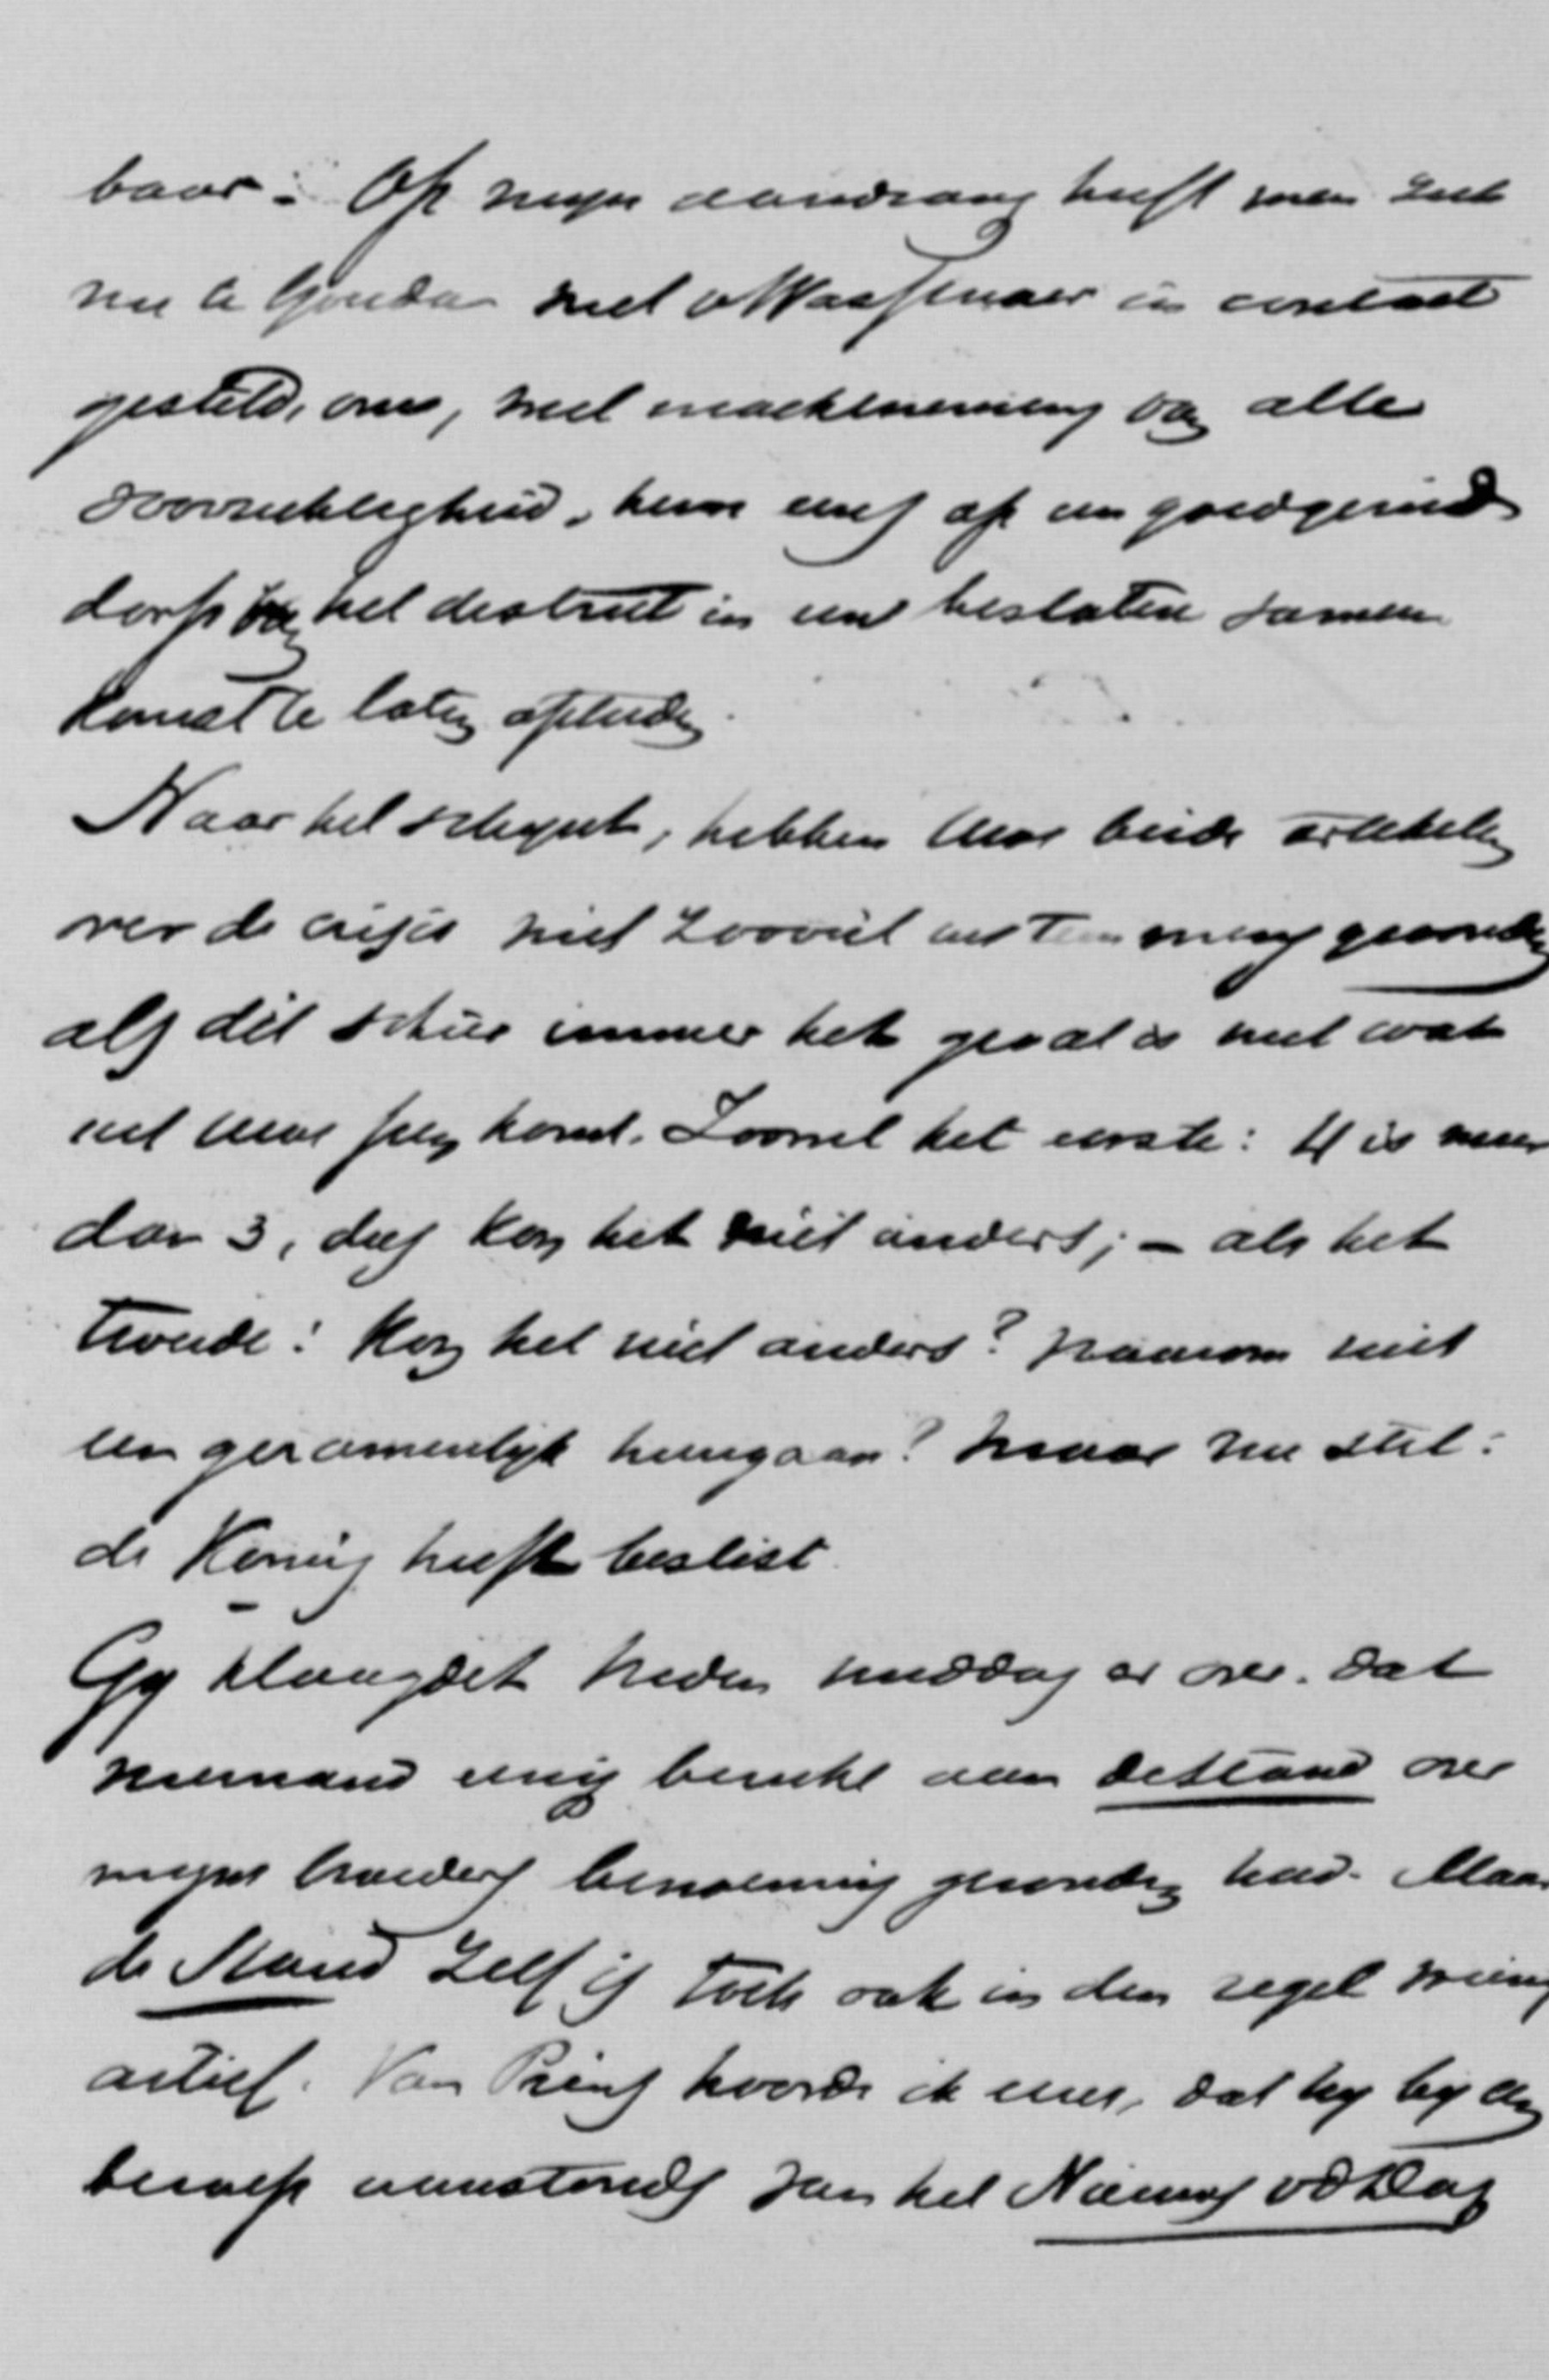 baar: Op mijn aandrang heeft men zich
nu te Gouda met v Wassenaer in contact
gesteld, om, met inachtneming van alle
voorzichtigheid, hem eens op een goedgezind
dorp van het district in een besloten samen
komst te laten optreden.
Naar het schijnt, hebben Uwe beide artikelen
over de crisis niet zooveel instemming gevonden
als dit schier immer het geval is met wat
uit Uwe pen komt. Zoowel het eerste: 4 is meer
dan 3, dus kon het niet anders; – als het
tweede: Kon het niet anders? waarom niet
een gezamenlijk heengaan? Maar nu stil:
de Koning heeft beslist.
Gy klaagdet heden middag er over, dat
niemand enig bericht aan de Stand over
mijns broeders benoeming gezonden had. Maar
de Stand zelf is toch ook in den regel weinig
actief. Van Prins hoorde ik eens, dat hy by den
beroep aanstonds van het Nieuws vd Dag